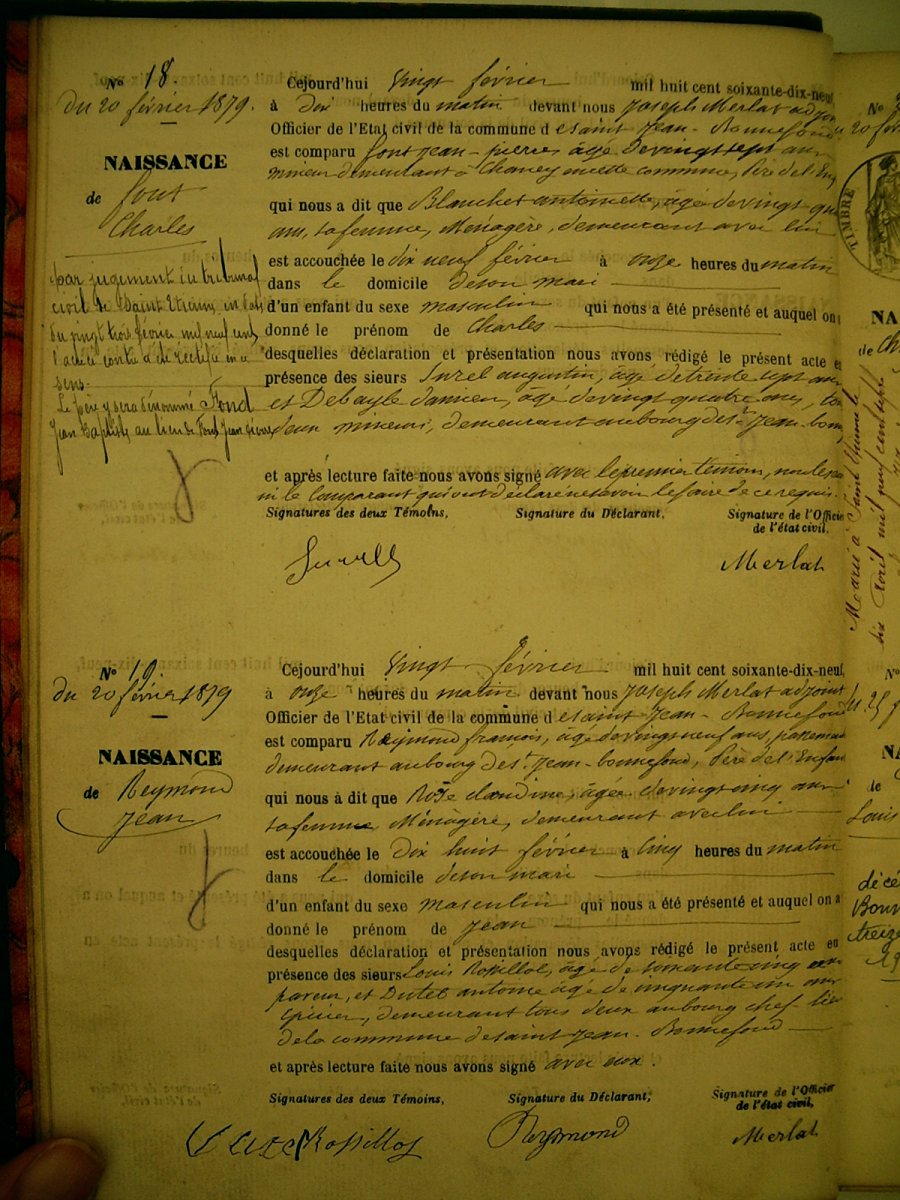 No 18.
du 20 février 1879.
NAISSANCE
de font
Charles
par jugement du tribunal
civil de Saint Etienne en date
du vingt trois février mil neuf cent
l'acte contre a été rectifié en ce
sens.
Le père y sera dénommé Fond
Jean Baptiste au lieu de Font Jean Pierre
Cejourd'hui vingt février mil huit cent soixante-dix-neuf
à dix heures du matin devant nous Joseph Merlat adjoint
Officier de l'Etat civil de la commune de saint Jean-Bonnefond
est comparu font jean-pierre, âgé de vingt sept ans
mineur demeurant à Chaney en cette commune, Père de l'Enf
qui nous a dit que Blanchet antoinette, âgé de vingt
ans, sa femme, Ménagère, demeurant avec lui
est accouchée le dix neuf février à onze heures du matin
dans le domicile de son mari
d'un enfant du sexe masculin qui nous a été présenté et auquel on
donné le prénom de Charles
desquelles déclaration et présentation nous avons rédigé le présent acte e
présence des sieurs Surel augustin, âgé de trente sept ans
et Debayle Damien, âgé de vingt quatre ans, to
deux mineurs, demeurant au bourg de St Jean-bonn
et après lecture faite nous avons signé avec le premier témoin, non le
ni le Comparant qui ont déclaré ne savoir le faire de ce requis.
Signatures des deux Témoins, Signature du Déclarant, Signature de l'Officie
de l'état civil.
Surell Merlat
No 19.
du 20 février 1879
NAISSANCE
de Reymond
Jean
Cejourd'hui vingt février mil huit cent soixante-dix-neuf
à onze heures du matin devant nous Joseph Merlat adjoint
Officier de l'Etat civil de la commune de saint Jean-Bonnefond
est comparu Reymond françois, âgé de vingt neuf ans, passemen
demeurant au bourg de St Jean-bonnefond, Père de l'Enfant
qui nous à dit que Rose claudine, âgée de vingt cinq ans
sa femme, Ménagère, demeurant avec lui
est accouchée le Dix huit février à Cinq heures du matin
dans le domicile de son mari
d'un enfant du sexe masculin qui nous a été présenté et auquel on a
donné le prénom de Jean
desquelles déclaration et présentation nous avons rédigé le présent acte en
présence des sieurs Louis Rossillol, âgé de soixante cinq ans
paveur, et Dutel antoine âgé de cinquante un ans
Epicier, demeurant tous deux au bourg chef lieu
de la commune de saint Jean-Bonnefond
et après lecture faite nous avons signé avec eux.
Signatures des deux Témoins, Signature du Déclarant, Signature de l'Officier
de l'état civil,
Rossillol Reymond Merlat
No
20 fév
TIMBRE
NA
de Ch
Marié à Saint
dix Avril mil neuf cent
No
25
NA
de
Louis
décé
Bonn
treize
19